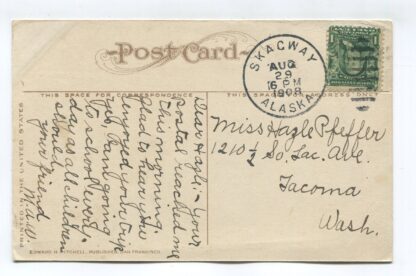 Post Card
SKAGWAY
AUG
29
6 PM
1908
ALASKA
THIS SPACE FOR CORRESPONDENCE
Dear Hazle:- Your
postal reached me
this morning.
Glad to hear you
enjoyed your trip
Yes, I am going
to school every
day as all children
should.
your friend
M.W.
Miss Hazle Pfeffer
1210 1/2 So. Lac. Ave.
Tacoma
Wash.
PRINTED IN THE UNITED STATES
EDWARD H. MITCHELL, PUBLISHER, SAN FRANCISCO.